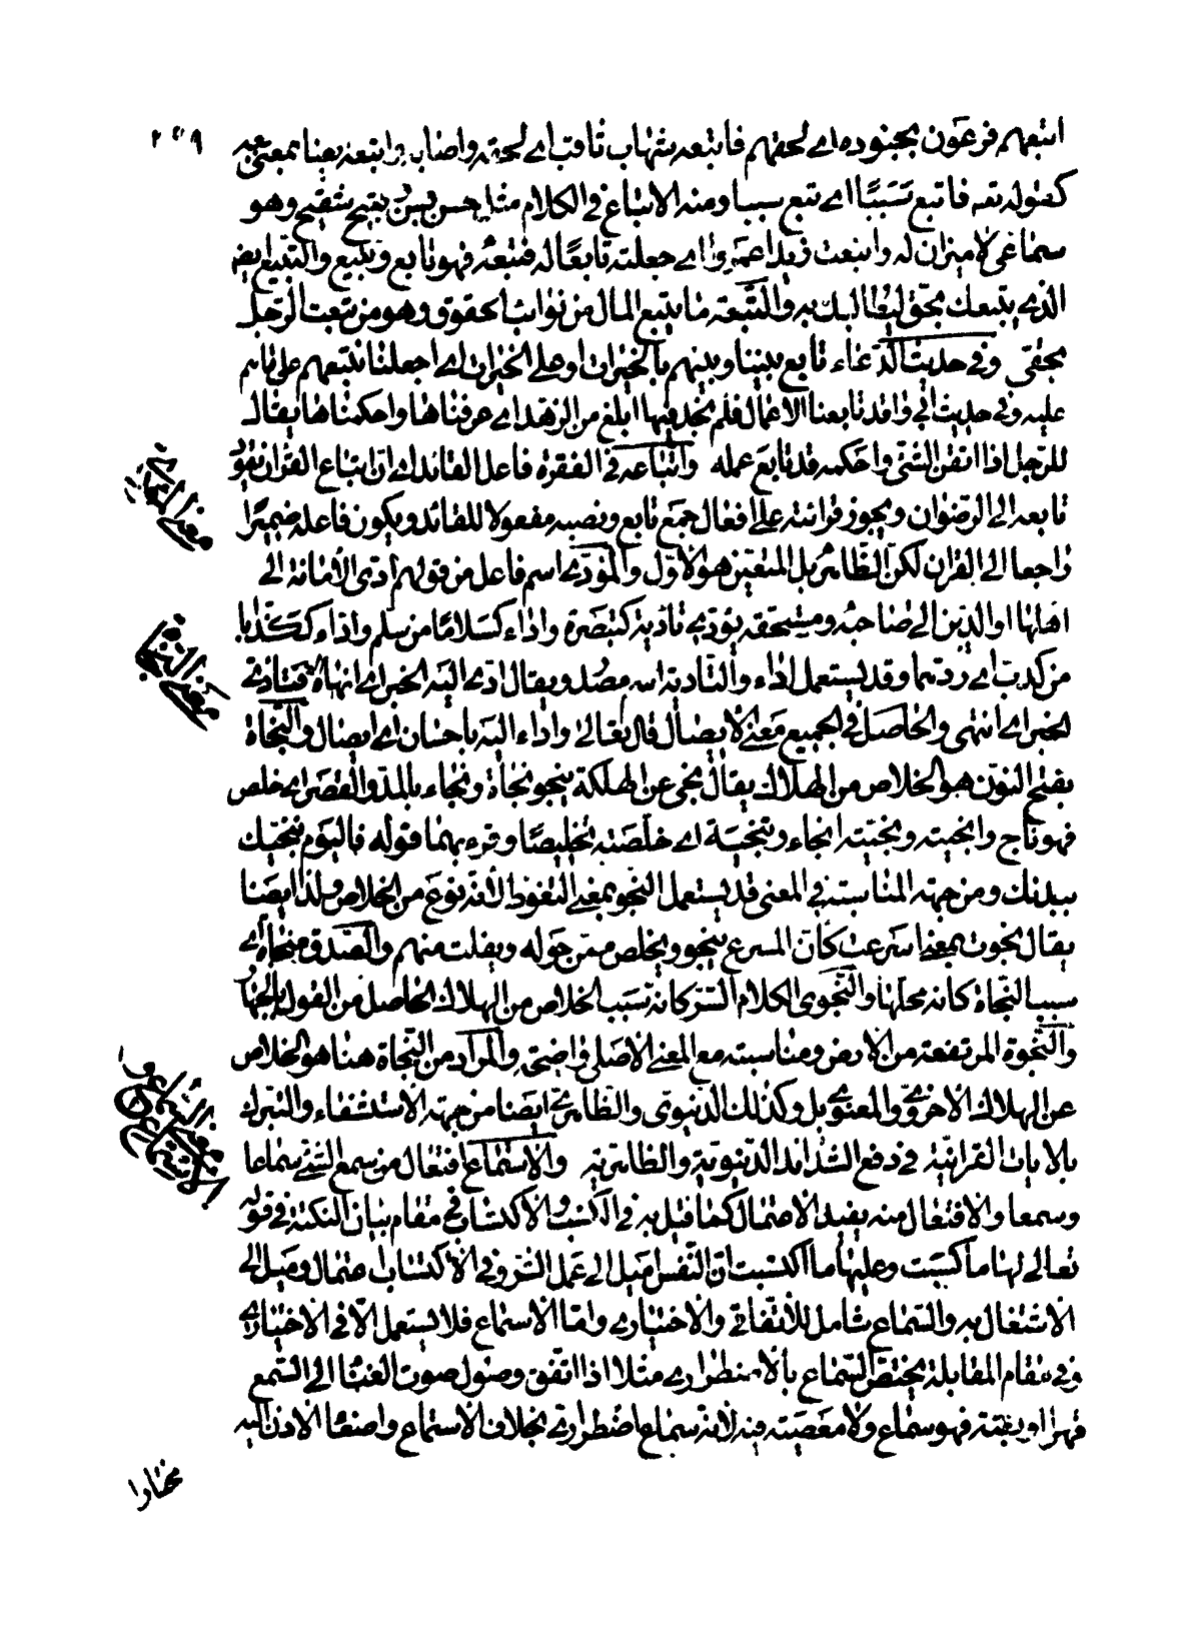 ٢٥٩
اتبعهم فرعون بجنوده اى لحقهم فاتبعه شهاب ثاقب اى لحقه واصابه واتبعه ايضا بمعنى تبعه
كقوله تعه فاتبع سَبَبًا اى تبع سببا ومنه الاتباع في الكلام مثل حسن بسن وقبيح شقيح وهو
سماعى لا ميزان له واتبعت زيدا عمروا اى جعلته تابعًا له فتبعه فهو تابع وتبيع والتبيع ايضا
الذى يتبعك بحق ليطالبك به والتبعة ما يتبع المال من نوائب الحقوق وهو من تبعت الرجل
بحقى وفى حديث الدعاء تابع بيننا وبينهم بالخيرات او على الخيرات اى اجعلنا نتبعهم على ما هم
عليه وفى حديث ابى واقد تابعنا الاعمال فلم نجد فيها ابلغ من الزهد اى عرفناها واحكمناها يقال
للرجل اذا اتقن الشئ واحكمه قد تابع عمله واتباعه في الفقرة فاعل القائد اى ان اتباع القران يقود
تابعه الى الرضوان ويجوز قرائته على افعال جمع تابع ونصبه مفعولا للقائد ويكون فاعله ضميرا
راجعا الى القران لكن الظاهر بل المتعين هو الاول والمؤدى اسم فاعل من قولهم ادى الامانة الى
اهلها او الدين الى صاحبه ومستحقه يؤدى تادية كتبصرة واداء كسلامًا من سلم واداء ككذابا
من كذب اى ردتهما وقد يستعمل اداء والتادية اسه مصدر ويقال ادى اليه الخبر اى انهاه فتادى
الخبر اى انتهى والحاصل في الجميع معنى الايصال قال تعالى واداء اليه باحسان اى ايصال والنجاة
بفتح النون هو الخلاص من الهلاك يقال نجى عن الهلكة ينجو نجاة ونجاء بالمد والقصر اى خلص
فهو ناج وانجيته ونجيته انجاء وتنجية اى خلصته تخليصًا وقرء بهما قوله فاليوم ننجيك
ببدنك ومن جهة المناسبة في المعنى قد يستعمل النجو بمعنى التغوط لانه نوع من الخلاص ولذا ايضا
يقال نجوت بمعنى اسرعت كأن المسرع ينجو ويخلص ممن حوله ويفلت منهم والصدق منجاة اى
سبب النجاة كانه محلها والنجوى الكلام السر كانه سبب الخلاص من الهلاك الحاصل من القول بالجهار
والنجوة المرتفعة من الارض ومناسبته مع المعنى الاصلى واضح والمراد من النجاة هنا هو الخلاص
عن الهلاك الاخروى والمعنوى بل وكذلك الدنيوى والظاهرى ايضا من جهة الاستشفاء والتبرك
بالايات القرانية في دفع الشدائد الدنيوية والظاهرية والاستماع افتعال من سمع الشئ سماعا
وسمعا والافتعال منه يفيد الاعتمال كما قيل به في الكسب والاكتساب في مقام بيان النكتة في قوله
تعالى لها ما كسبت وعليها ما اكتسبت ان النفس اميل الى عمل الشر وفى الاكتساب اعتمال وميل الى
الاشتغال به والسماع شامل للاتفاقى والاختيارى واما الاستماع فلا يستعمل الا فى الاختيارى
وفى مقام المقابلة يختص السماع بالاضطرارى مثلا اذا اتفق وصول صوت الغنا الى السمع
قهرا او بغتة فهو سماع ولا معصية فيه لانه سماع اضطرارى بخلاف الاستماع واصغاء الاذن اليه
مختارا
معنى النجاة
معنى السماع و
الاستماع